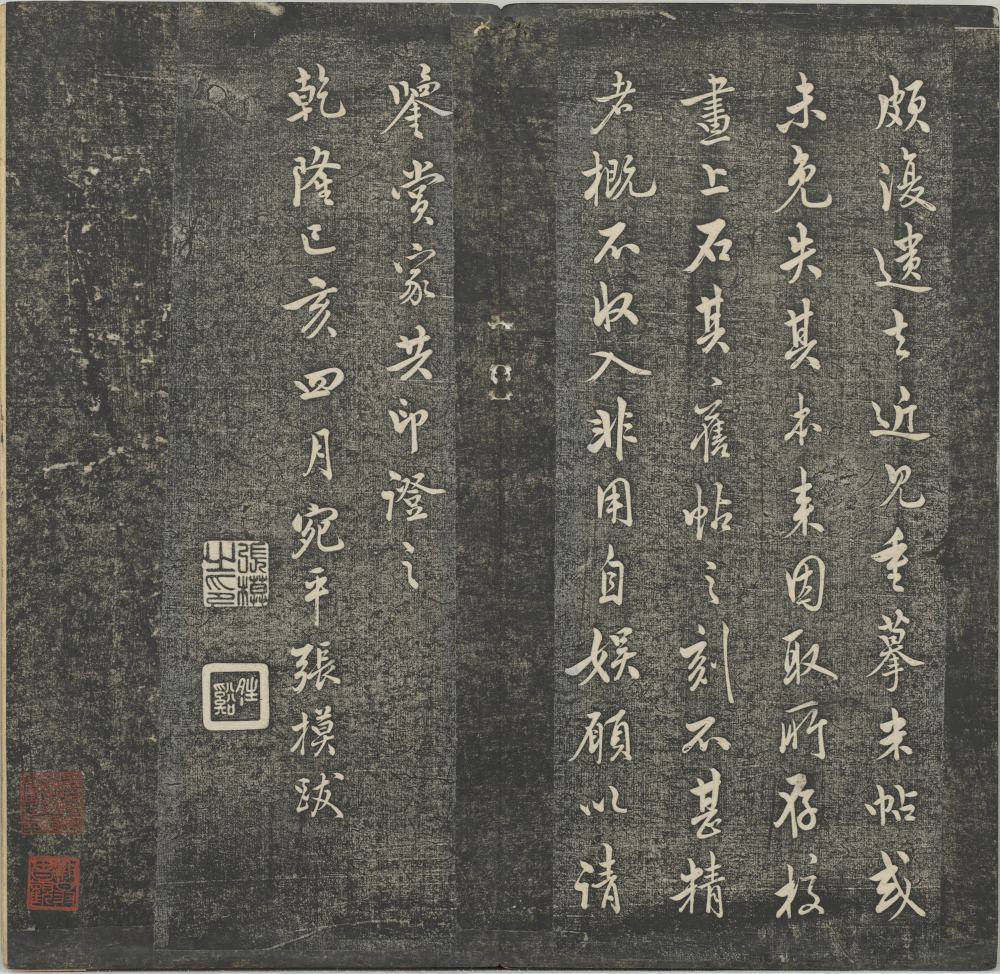 頗復遺去近見重摹米帖或
未免失其本来因取所存校
畫上石其舊帖之刻不甚精
者概不收入非用自娱願以請
鑒賞家共印證之
乾隆已亥四月宛平張模跋
張模之印